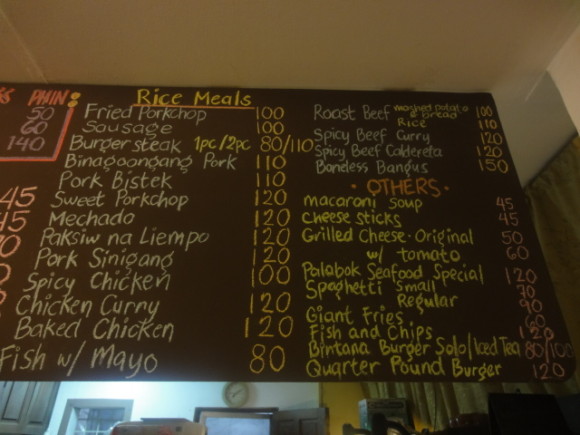 PHIN:
50
60
140
45
45
Rice Meals
Fried Porkchop 100
Sousage 100
Burgersteak 1pc/2pc 80/110
Binagoongang Pork 110
Pork Bistek 110
Sweet Porkchop 120
Mechado 120
Paksiw na Liempo 120
Pork Sinigang 120
Spicy Chicken 100
Chicken Curry 120
Baked Chicken 120
Fish w/ Mayo 80
Roast Beef mashed potato & bread 100
Rice 110
Spicy Beef Curry 120
Spicy Beef Caldereta 120
Boneless Bangus 150
· OTHERS ·
macaroni soup 45
cheese sticks 45
Grilled Cheese · Original 50
w/ tomato 60
Palabok Seafood Special 120
Spaghetti Small
Regular 90
Giant Fries 60
Fish and Chips 120
Bintana Burger Solo/Iced Tea 80/100
Quarter Pound Burger 120